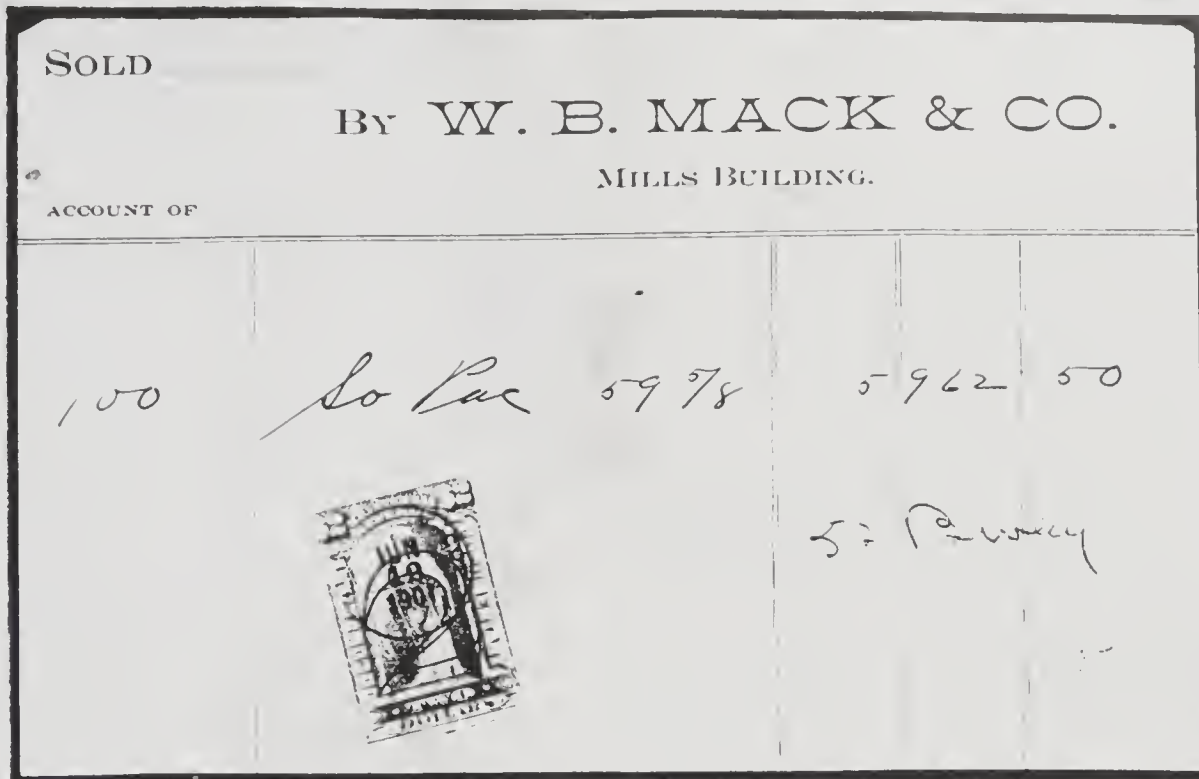 SOLD
BY W. B. MACK & CO.
MILLS BUILDING.
ACCOUNT OF
100 So Pac 59 5/8 5962 50
JUN
1901
TWO
DOLLARS